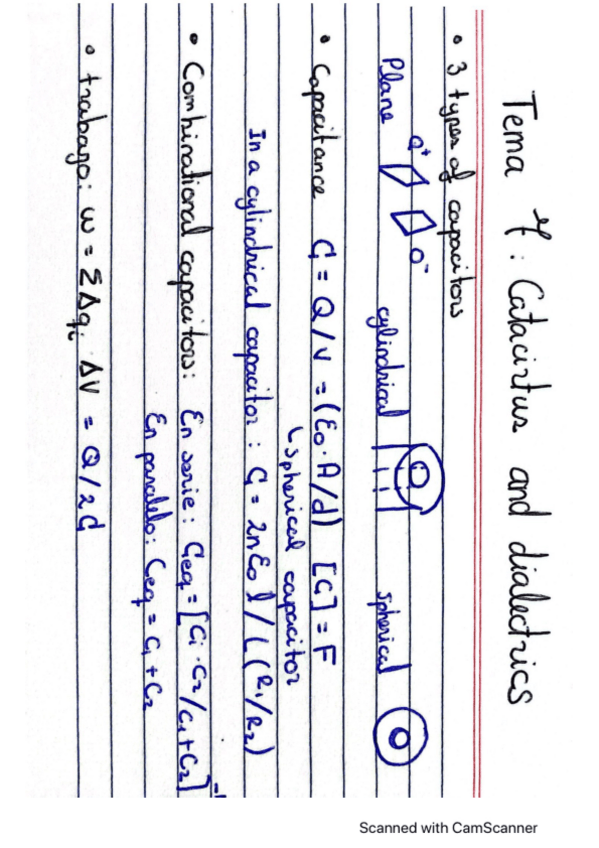 Tema 7: Catacirtus and dialectrics
• 3 types of capacitors
Plane cylindrical spherical
Q+ Q-
• Capacitance C = Q/V = (ε0·A/d) [C] = F
↳ spherical capacitor
In a cylindrical capacitor: C = 2πε0 l / L(R1/R2)
• Combinational capacitors: En serie: Ceq = [C1·C2/C1+C2]^-1
En paralelo: Ceq = C1+C2
• trabajo: W = ΣΔqi ΔV = Q/2C
Scanned with CamScanner